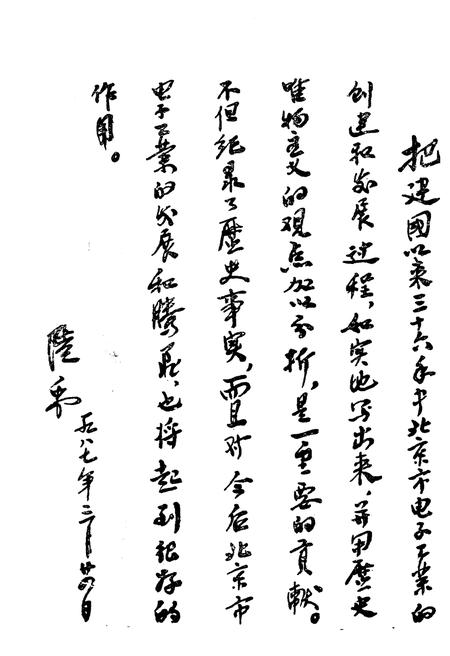 把建國以来三十六年中北京市电子工业的
创建和发展过程，如实地写出来，并用歷史
唯物主义的观点加以分析，是一重要的贡献。
不但纪录了歷史事实，而且对今后北京市
电子工业的发展和腾飞，也将起到很好的
作用。
陸禹
一九八七年三月廿四日